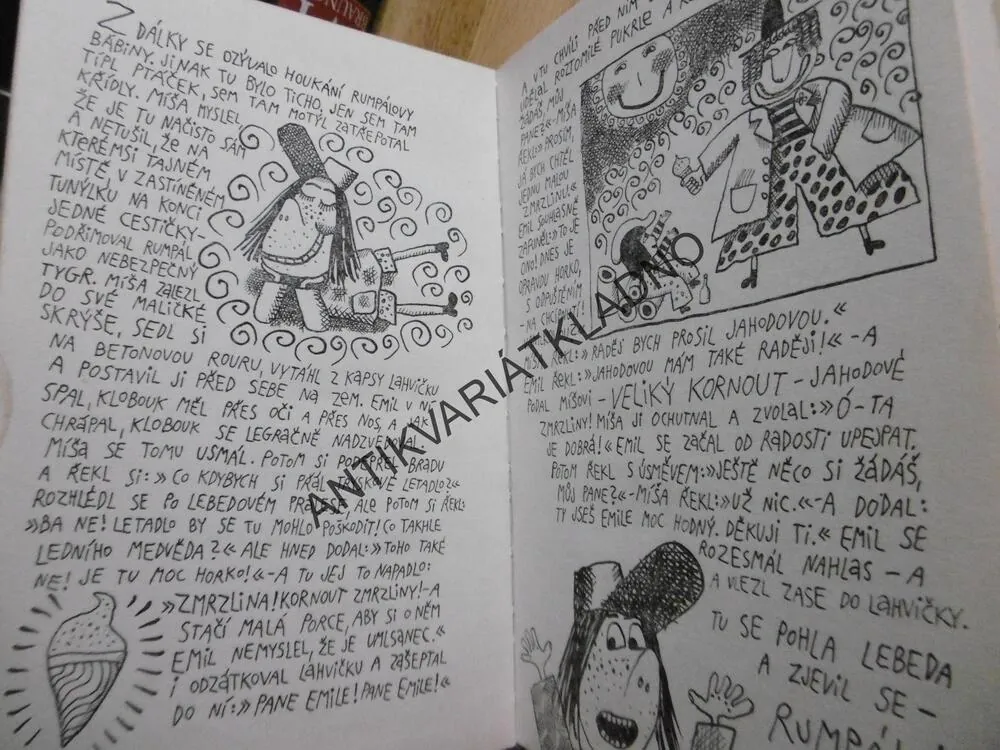 BRAUN
Z DÁLKY SE OZÝVALO HOUKÁNÍ RUMPÁLOVY
BÁBINY. JINAK TU BYLO TICHO, JEN SEM TAM
TÍPL PTÁČEK, SEM TAM MOTÝL ZATŘEPOTAL
KŘÍDLY. MÍŠA MYSLEL,
ŽE JE TU NAČISTO SÁM
A NETUŠIL, ŽE NA
KTERÉMSI TAJNÉM
MÍSTĚ V ZASTÍNĚNÉM
TUNÝLKU NA KONCI
JEDNÉ CESTIČKY-
PODŘIMOVAL RUMPÁL
JAKO NEBEZPEČNÝ
TYGR. MÍŠA ZALEZL
DO SVÉ MALIČKÉ
SKRÝŠE, SEDL SI
NA BETONOVOU ROURU, VYTÁHL Z KAPSY LAHVIČKU
A POSTAVIL JI PŘED SEBE NA ZEM. EMIL V NÍ
SPAL, KLOBOUK MĚL PŘES OČI A PŘES NOS, A JAK
CHRÁPAL, KLOBOUK SE LEGRAČNĚ NADZVEDOVAL.
MÍŠA SE TOMU USMÁL. POTOM SI PODEPŘEL BRADU
A ŘEKL SI:» CO KDYBYCH SI PŘÁL TRYSKOVÉ LETADLO?«
ROZHLÉDL SE PO LEBEDOVÉM PRALESE, ALE POTOM SI ŘEKL:
»BA NE! LETADLO BY SE TU MOHLO POŠKODIT! CO TAKHLE
LEDNÍHO MEDVĚDA?« ALE HNED DODAL:» TOHO TAKÉ
NE! JE TU MOC HORKO!«-A TU JEJ TO NAPADLO:
»ZMRZLINA! KORNOUT ZMRZLINY!-A
STAČÍ MALÁ PORCE, ABY SI O NĚM
EMIL NEMYSLEL, ŽE JE UMLSANEC.«
I ODZÁTKOVAL LAHVIČKU A ZAŠEPTAL
DO NÍ:» PANE EMILE! PANE EMILE!«
A V TU CHVÍLI PŘED NÍM
UDĚLAL ROZTOMILÉ PUKRLE A
ŽÁDÁŠ, MŮJ
PANE?«-MÍŠA
ŘEKL:» PROSÍM,
JÁ BYCH CHTĚL
JEDNU MALOU
ZMRZLINU.«
EMIL SOUHLASNĚ
ZAFUNĚL:» TO JE
ONO! DNES JE
OPRAVDU HORKO,
S ODPUŠTĚNÍM
-NA CHCÍPNUTÍ!
MÍŠA ŘEKL:» RADĚJ BYCH PROSIL JAHODOVOU.«
EMIL ŘEKL:»JAHODOVOU MÁM TAKÉ RADĚJI!«-A
PODAL MÍŠOVI-VELIKÝ KORNOUT-JAHODOVÉ
ZMRZLINY! MÍŠA JI OCHUTNAL A ZVOLAL:» Ó-TA
JE DOBRÁ!« EMIL SE ZAČAL OD RADOSTI UPEJPAT.
POTOM ŘEKL S ÚSMĚVEM:»JEŠTĚ NĚCO SI ŽÁDÁŠ,
MŮJ PANE?«-MÍŠA ŘEKL:»UŽ NIC.«-A DODAL:
TY JSEŠ EMILE MOC HODNÝ. DĚKUJI TI.« EMIL SE
ROZESMÁL NAHLAS-A
A VLEZL ZASE DO LAHVIČKY.
TU SE POHLA LEBEDA
A ZJEVIL SE-
RUMPÁL
ANTIKVARIÁTKLADNO